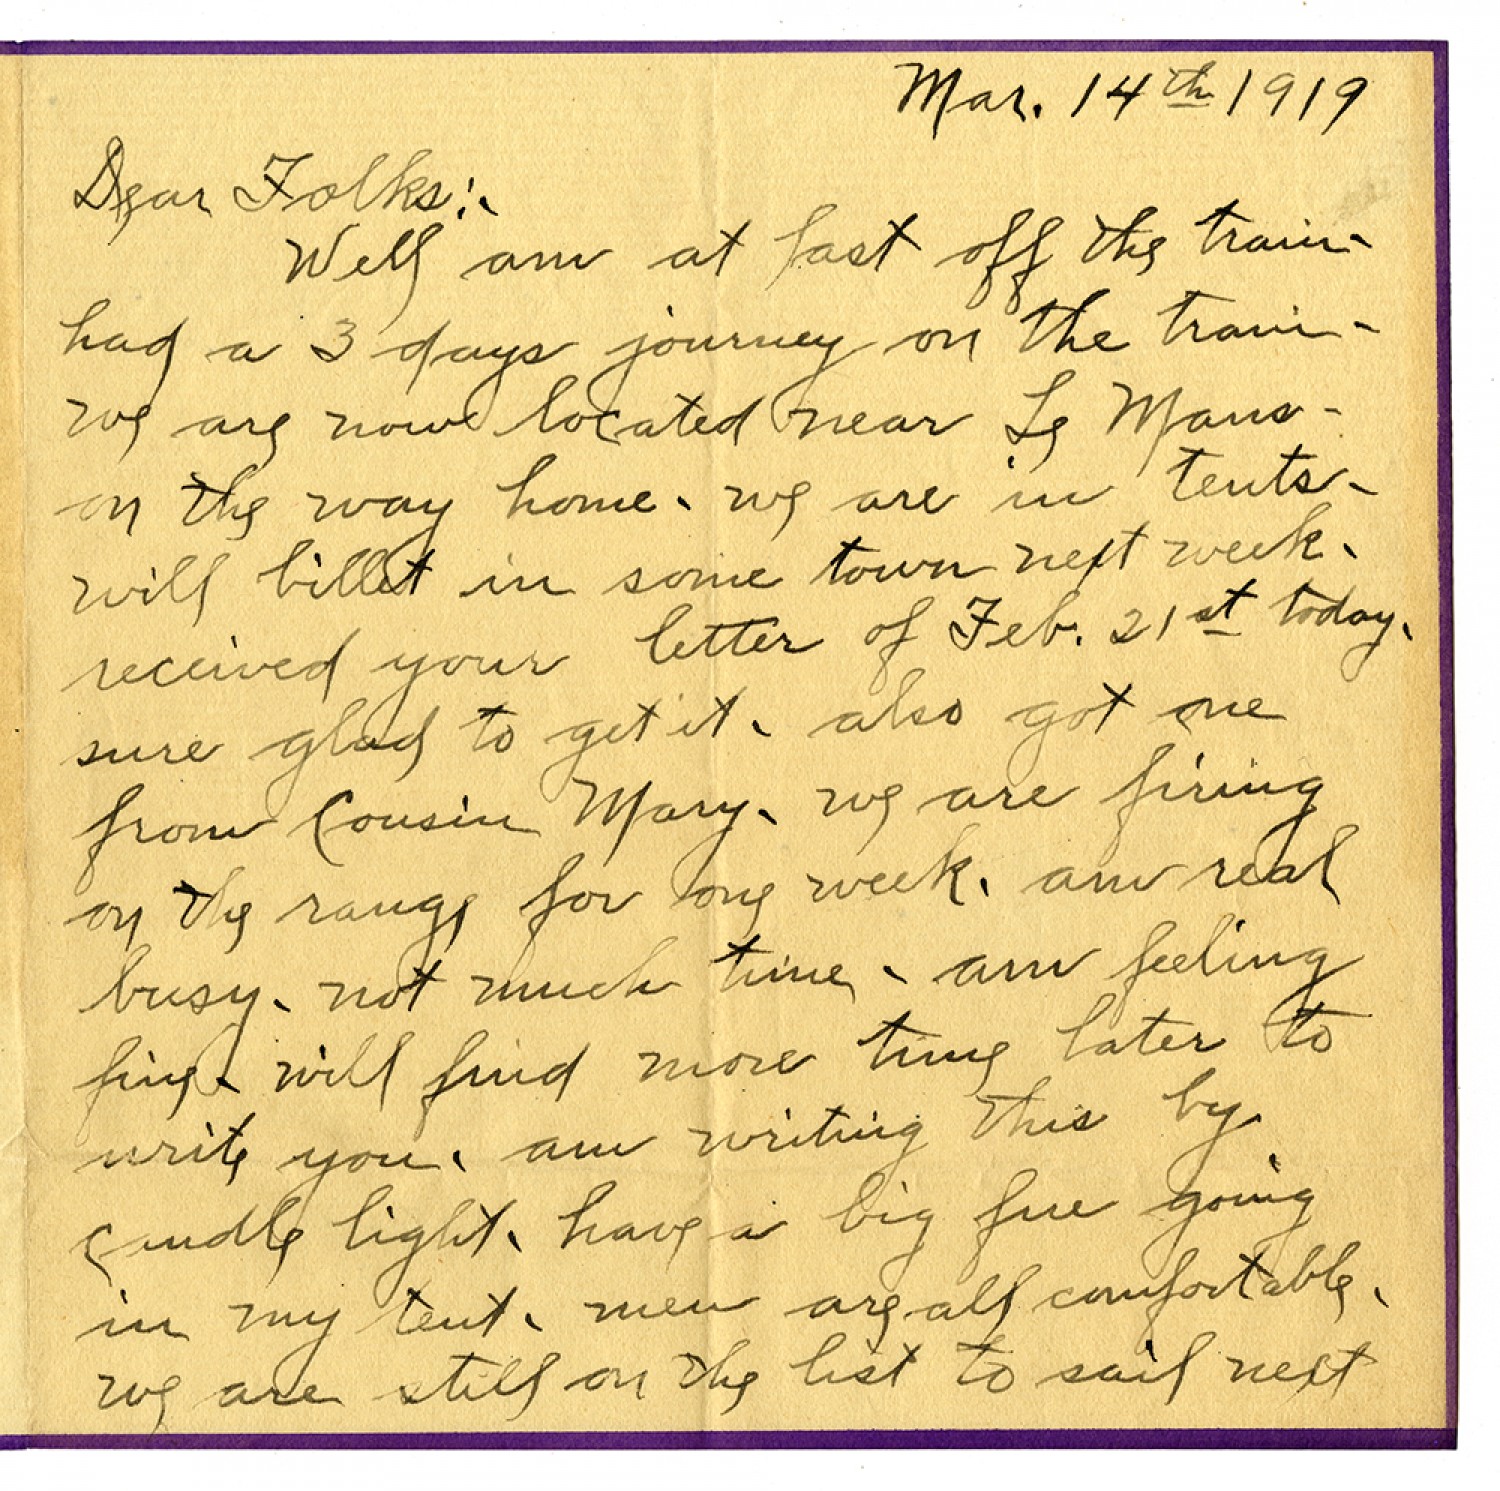 Mar. 14th 1919
Dear Folks:-
Well am at last off the train-
had a 3 days journey on the train-
we are now located near Le Mans-
on the way home. we are in tents-
will billet in some town next week.
received your letter of Feb. 21st today.
sure glad to get it. also got one
from Cousin Mary. we are firing
on the range for one week. am real
busy. not much time. am feeling
fine. will find more time later to
write you. am writing this by
candle light. have a big fire going
in my tent. men are all comfortable.
we are still on the list to sail next